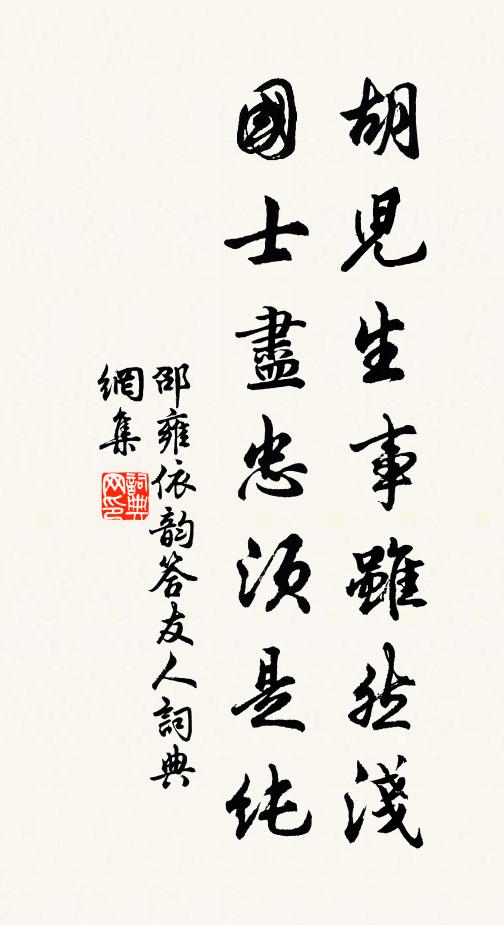 胡児生事雖然淺
國士盡忠須是純
邵雍依韵答友人詞典
網集
詞典
网印